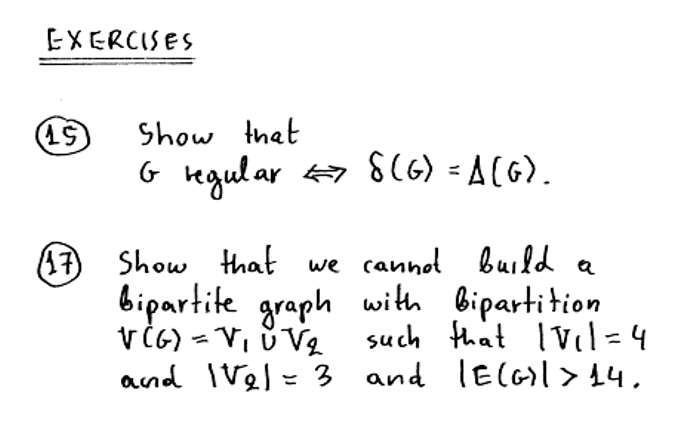 EXERCISES
(15) Show that
G regular ⟺ δ(G) = Δ(G).
(17) Show that we cannot build a
bipartite graph with bipartition
V(G) = V₁ ∪ V₂ such that |V₁| = 4
and |V₂| = 3 and |E(G)| > 14.